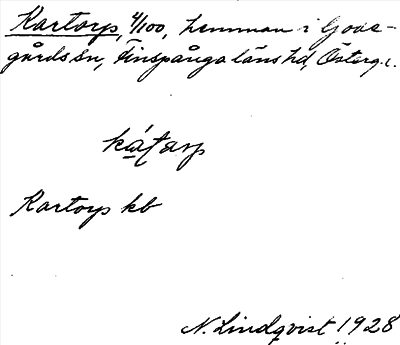 Kartorp, 4/100, hemman i Gode-
gårds sn, Finspånga läns hd, Österg. l.
ká̱tarp
Kartorp kb
N. Lindqvist 1928